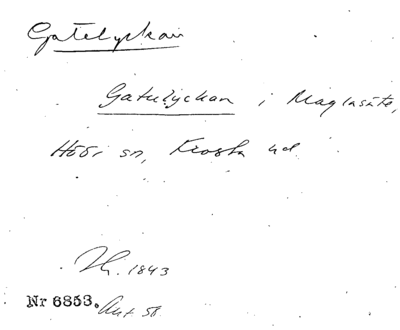 Gatelyckan
Gatulyckan i Maglasäte,
Höörs sn, Frosta hd
Th. 1843
Nr 6853. Ant 58.